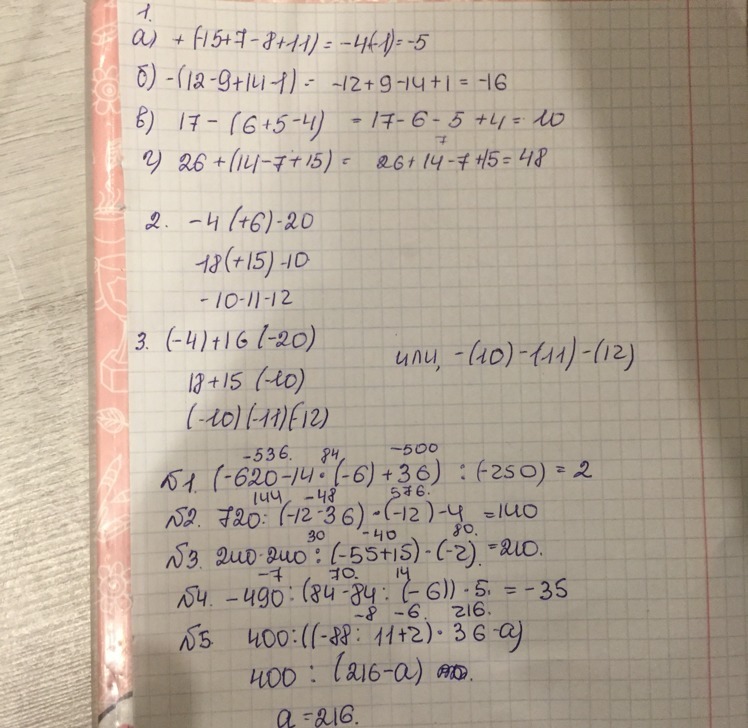 1.
а) + (-15+7-8+11) = -4(-1) = -5
б) -(12-9+14-1) = -12+9-14+1 = -16
в) 17 - (6+5-4) = 17-6-5+4 = 10
7
г) 26+(14-7+15) = 26+14-7+15 = 48
2. -4 (+6)-20
-18(+15)-10
-10-11-12
3. (-4)+16 (-20)
или, -(10)-(11)-(12)
18+15 (-10)
(-10)(-11)(-12)
-536. 84 -500
№1. (-620-14·(-6)+36) : (-250) = 2
144 -48 576.
№2. 720: (-12-36)·(-12)-4 =140
30 -40 80.
№3. 240-240 : (-55+15)·(-2). =210.
-7 70. 14
№4. -490:(84-84: (-6))·5. = -35
-8 -6. 216.
№5 400:((-88: 11+2)·36-a)
400 : (216-a)
a=216.